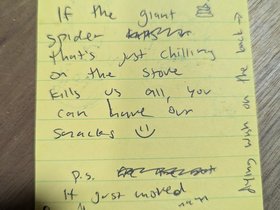 If the giant
spider
that's just chilling
on the stove
kills us all, you
can have our
snacks
p.s.
It just moved
dying wish on the back →